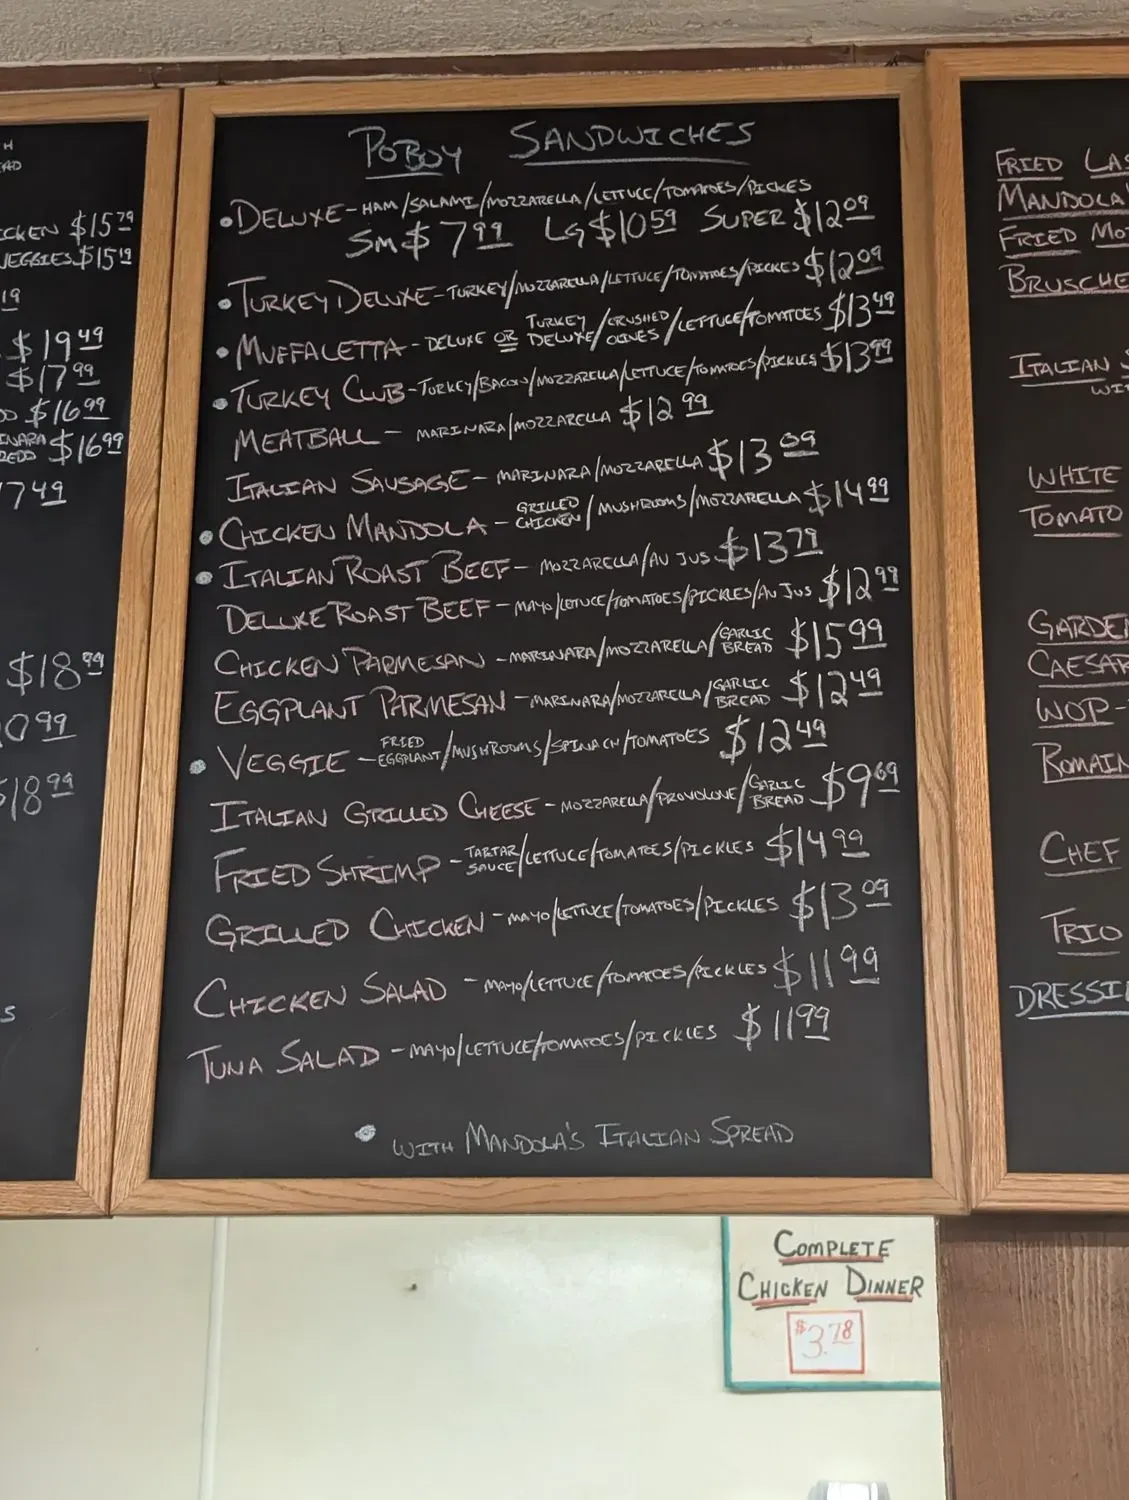 POBOY SANDWICHES
• DELUXE - HAM/SALAMI/MOZZARELLA/LETTUCE/TOMATOES/PICKES
SM $7.99 LG $10.59 SUPER $12.09
• TURKEY DELUXE - TURKEY/MOZZARELLA/LETTUCE/TOMATOES/PICKES $12.09
• MUFFALETTA - DELUXE OR TURKEY DELUXE/CRUSHED OLIVES/LETTUCE/TOMATOES $13.49
• TURKEY CLUB - TURKEY/BACON/MOZZARELLA/LETTUCE/TOMATOES/PICKLES $13.99
MEATBALL - MARINARA/MOZZARELLA $12.99
ITALIAN SAUSAGE - MARINARA/MOZZARELLA $13.09
• CHICKEN MANDOLA - GRILLED CHICKEN/MUSHROOMS/MOZZARELLA $14.99
• ITALIAN ROAST BEEF - MOZZARELLA/AU JUS $13.79
DELUXE ROAST BEEF - MAYO/LETUCE/TOMATOES/PICKLES/AU JUS $12.99
CHICKEN PARMESAN - MARINARA/MOZZARELLA/GARLIC BREAD $15.99
EGGPLANT PARMESAN - MARINARA/MOZZARELLA/GARLIC BREAD $12.49
• VEGGIE - FRIED EGGPLANT/MUSHROOMS/SPINACH/TOMATOES $12.49
ITALIAN GRILLED CHEESE - MOZZARELLA/PROVOLONE/GARLIC BREAD $9.69
FRIED SHRIMP - TARTAR SAUCE/LETTUCE/TOMATOES/PICKLES $14.99
GRILLED CHICKEN - MAYO/LETTUCE/TOMATOES/PICKLES $13.09
CHICKEN SALAD - MAYO/LETTUCE/TOMATOES/PICKLES $11.99
TUNA SALAD - MAYO/LETTUCE/TOMATOES/PICKLES $11.99
• WITH MANDOLA'S ITALIAN SPREAD
$15.79
$15.19
19
$19.49
$17.99
$16.99
$16.99
7.49
$18.99
0.99
18.99
FRIED
MANDOLA'
FRIED
ITALIAN
WHITE
TOMATO
WOP-
CHEF
TRIO
COMPLETE
CHICKEN DINNER
$3.78